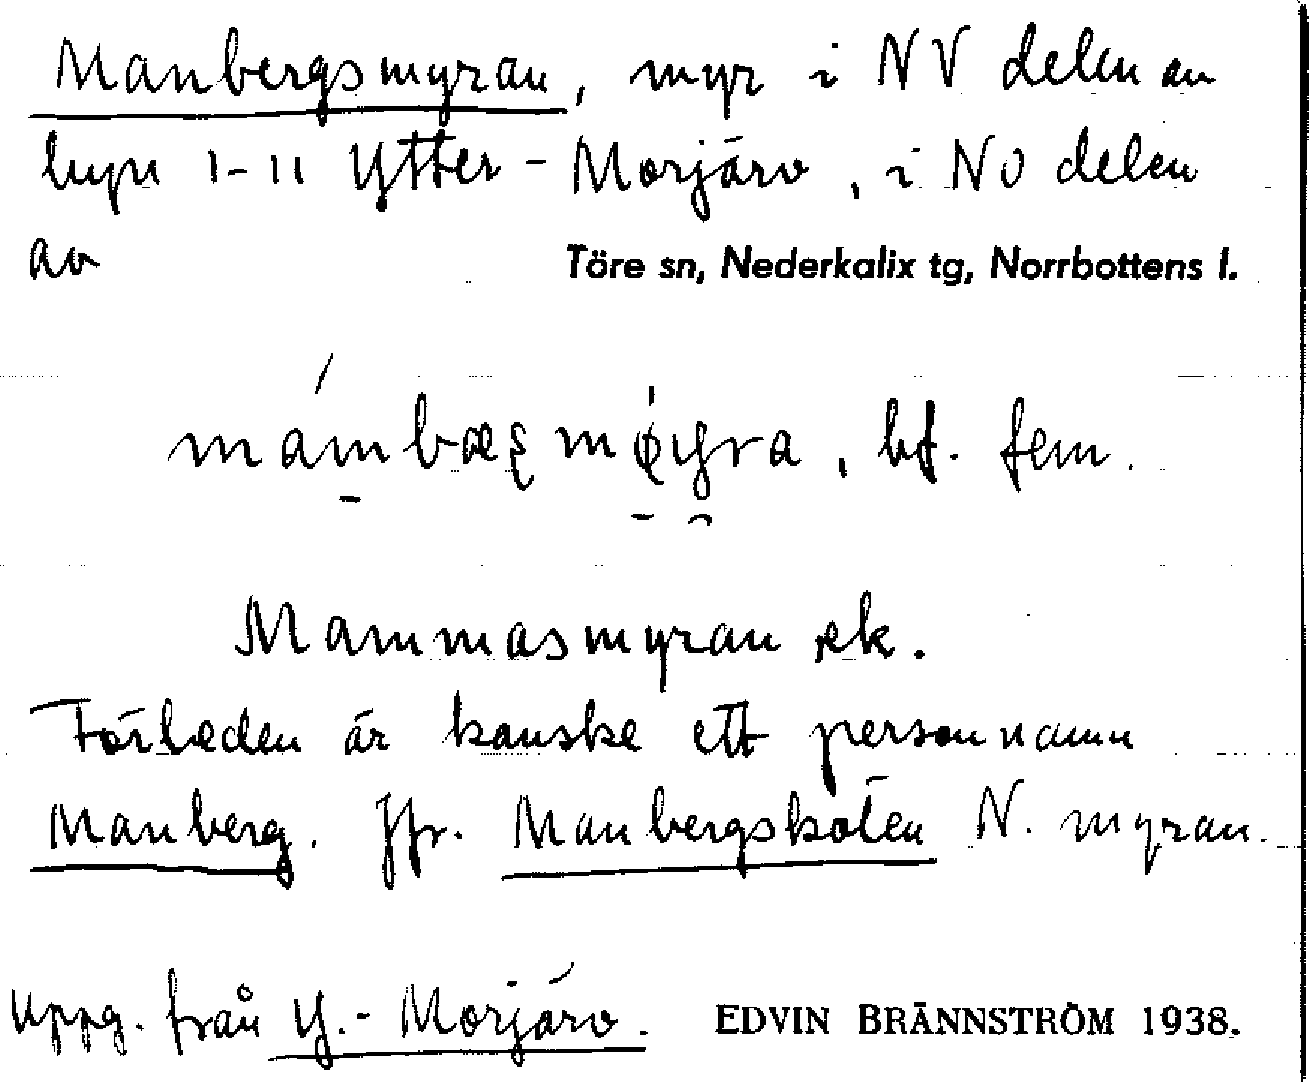 Manbergsmyran, myr i NV delen av
hyn 1-11 Ytter-Morjärv, i NO delen
av Töre sn, Nederkalix tg, Norrbottens l.
bf. fem.
Mammasmyran ek.
Förleden är kanske ett personnamn
Manberg. Jfr. Manbergskölen N. myran.
Uppg. från Y.-Morjärv. EDVIN BRÄNNSTRÖM 1938.